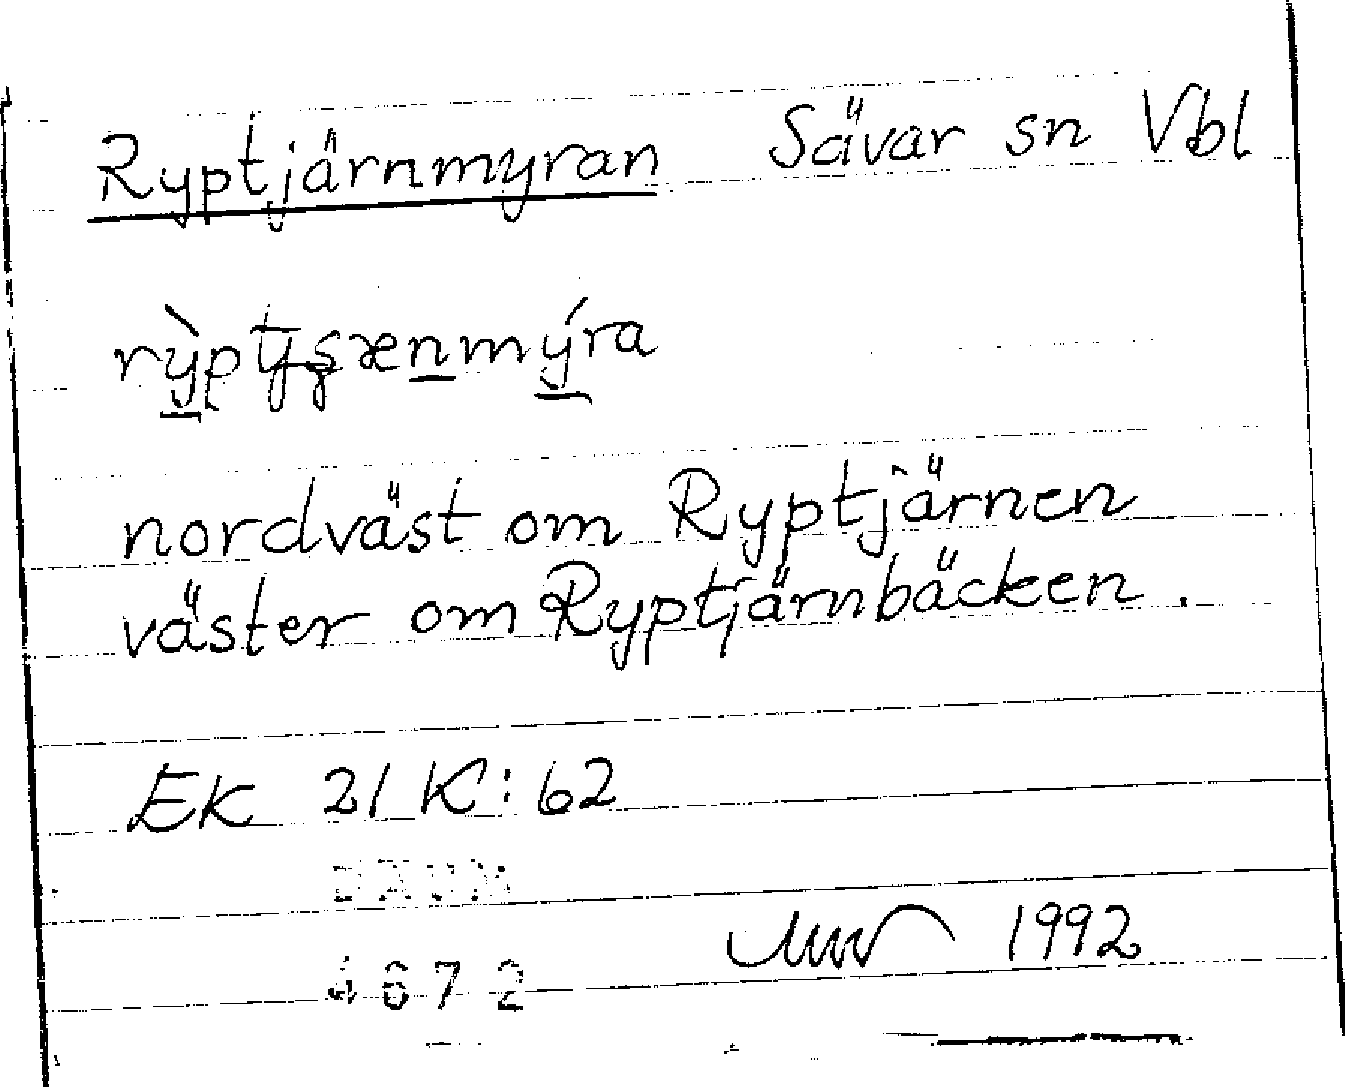 Ryptjärnmyran Sävar sn Vbl
nordväst om Ryptjärnen
väster om Ryptjärnbäcken.
EK 21 K:62
DAUM
4672
1992